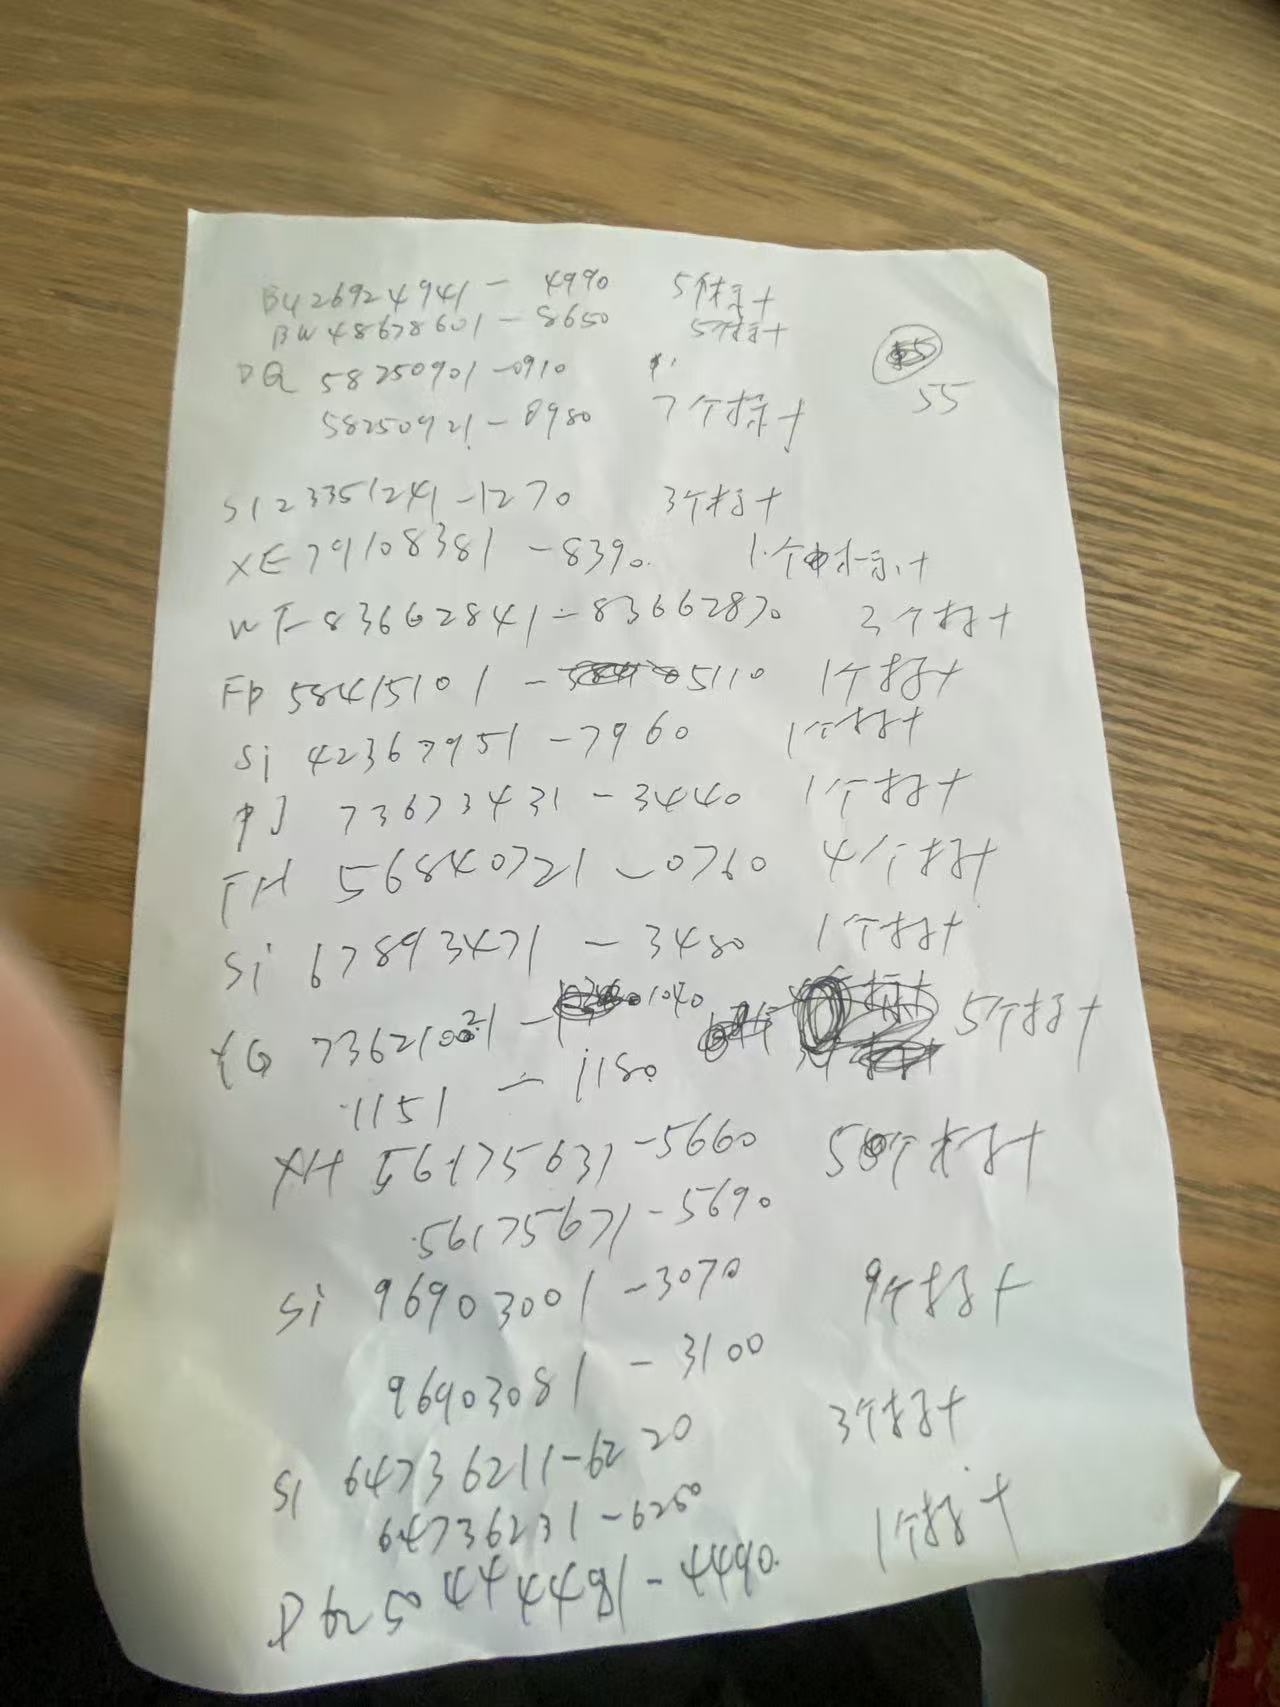 BU26924941 - 4990 5个标十
BW48678601 - 8650 5个标十
55
DQ 58250901 - 0910
58250921 - 0980 7个标十
SI 23351241 - 1270 3个标十
XE79108381 - 8390 1个标十
WF83662841 - 83662870 3个标十
FP 58415101 - 5110 1个标十
Si 42367951 - 7960 1个标十
PJ 73673431 - 3440 1个标十
FH 56840721 - 0760 4个标十
Si 67893471 - 3480 1个标十
YG 73621021 - 1040 5个标十
1151 - 1180
XH 56175631 - 5660 5个标十
56175671 - 5690
Si 96903001 - 3070 9个标十
96903081 - 3100
Si 64736211 - 6220 3个标十
64736231 - 6250
50444481 - 4490 1个标十